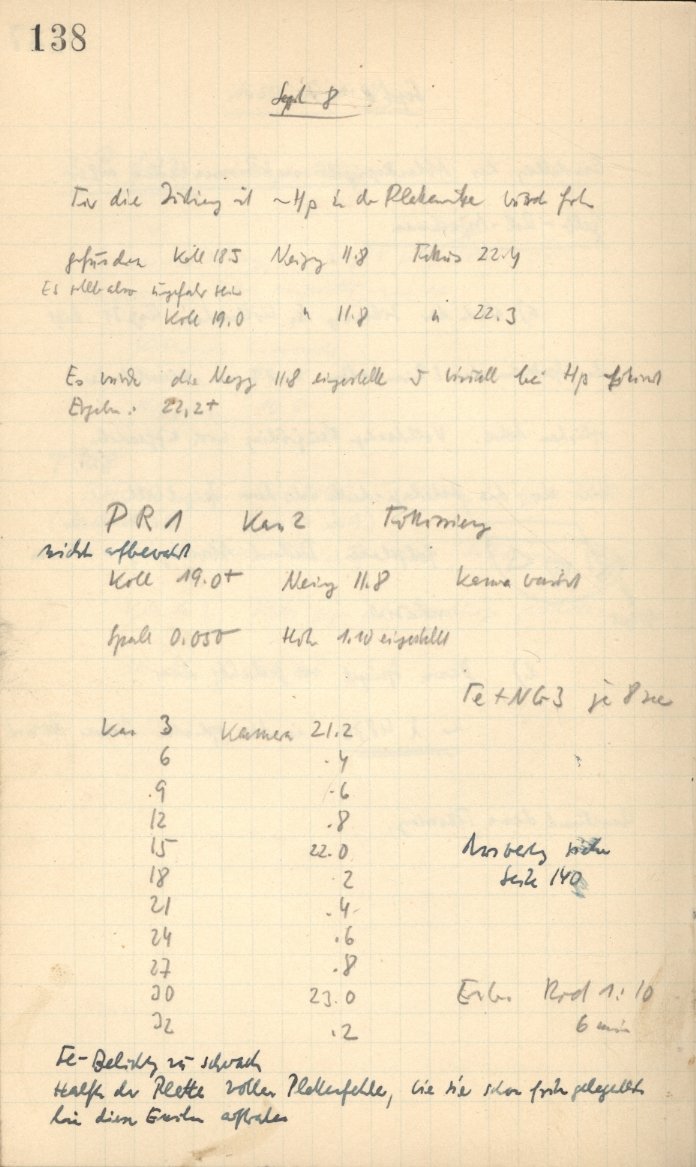 138
Sept. 8
Für die ist ~Hβ in der Plattenmitte früher
gefunden Koll 18.5 Neigg 11.8 Fokus 22.4
Es sollte also ungefähr sein
Koll 19.0 " 11.8 " 22.3
Es wurde die Neigg 11.8 eingestellt u visuell bei Hβ
Ergebn.: 22,2+
PR1 Kas 2 Fokussierg
nicht aufbewahrt
Koll 19.0+ Neigg 11.8 Kamera variiert
Spalt 0.050 Höhe 1.10 eingestellt
Fe + NG3 je 8 sec
Kas 3 Kamera 21.2
6 .4
9 .6
12 .8
15 22.0
Auswertg siehe
18 .2
Seite 140
21 .4
24 .6
27 .8
30 23.0
Rod 1:10
32 .2
6 min
Fe-Belichtg zu schwach
Hälfte der Platte voller Plattenfehler, wie sie schon früher gelegentl.
bei diesen auftraten